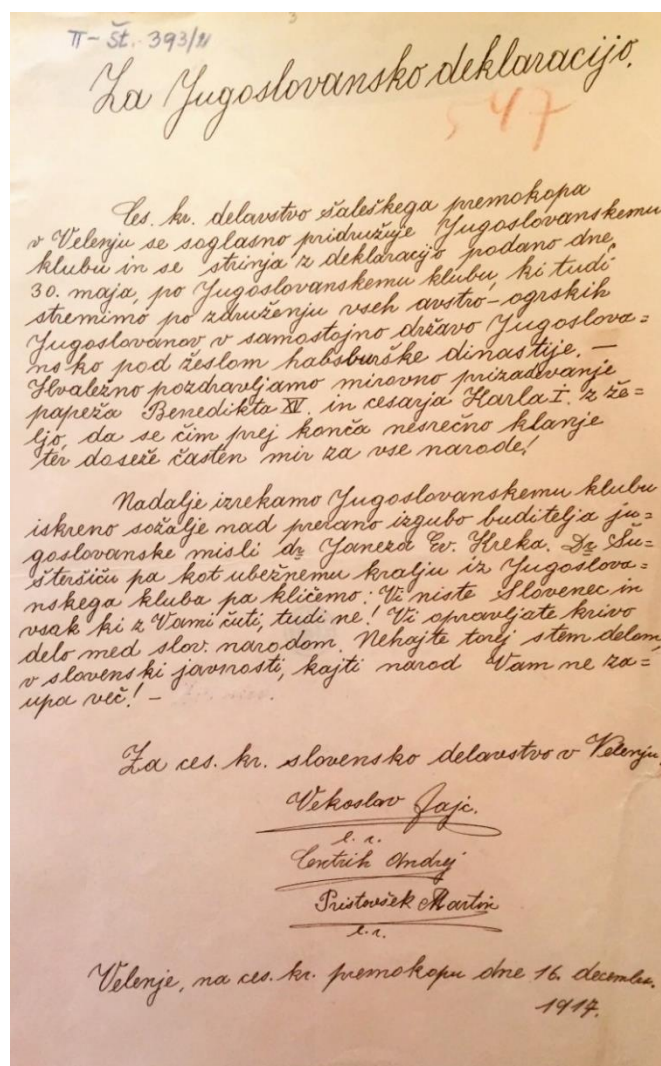 II - Št. 393/21
Za Jugoslovansko deklaracijo.
547
Ces. kr. delavstvo šaleškega premokopa
v Velenju se soglasno pridružuje Jugoslovanskemu
klubu in se strinja z deklaracijo podano dne
30. maja, po Jugoslovanskemu klubu, ki tudi
stremimo po združenju vseh avstro-ogrskih
Jugoslovanov v samostojno državo Jugoslova=
nsko pod žeslom habsburške dinastije. —
Hvaležno pozdravljamo mirovno prizadevanje
papeža Benedikta XV. in cesarja Karla I. z že=
ljo, da se čim prej konča nesrečno klanje
ter doseže časten mir za vse narode!
Nadalje izrekamo Jugoslovanskemu klubu
iskreno sožalje nad prerano izgubo buditelja ju=
goslovanske misli dr Janeza Ev. Kreka. Dr Šu=
šteršiču pa kot ubežnemu kralju iz Jugoslova=
nskega kluba pa kličemo: Vi niste Slovenec in
vsak ki z Vami čuti, tudi ne! Vi opravljate krivo
delo med slov. narodom. Nehajte torej s tem delom,
v slovenski javnosti, kajti narod Vam ne za=
upa več! —
Za ces. kr. slovensko delavstvo v Velenju,
Vekoslav Jajc.
l. r.
Centrih Andrej
Pristovšek Martin
l. r.
Velenje, na ces. kr. premokopu dne 16. decembr.
1917.